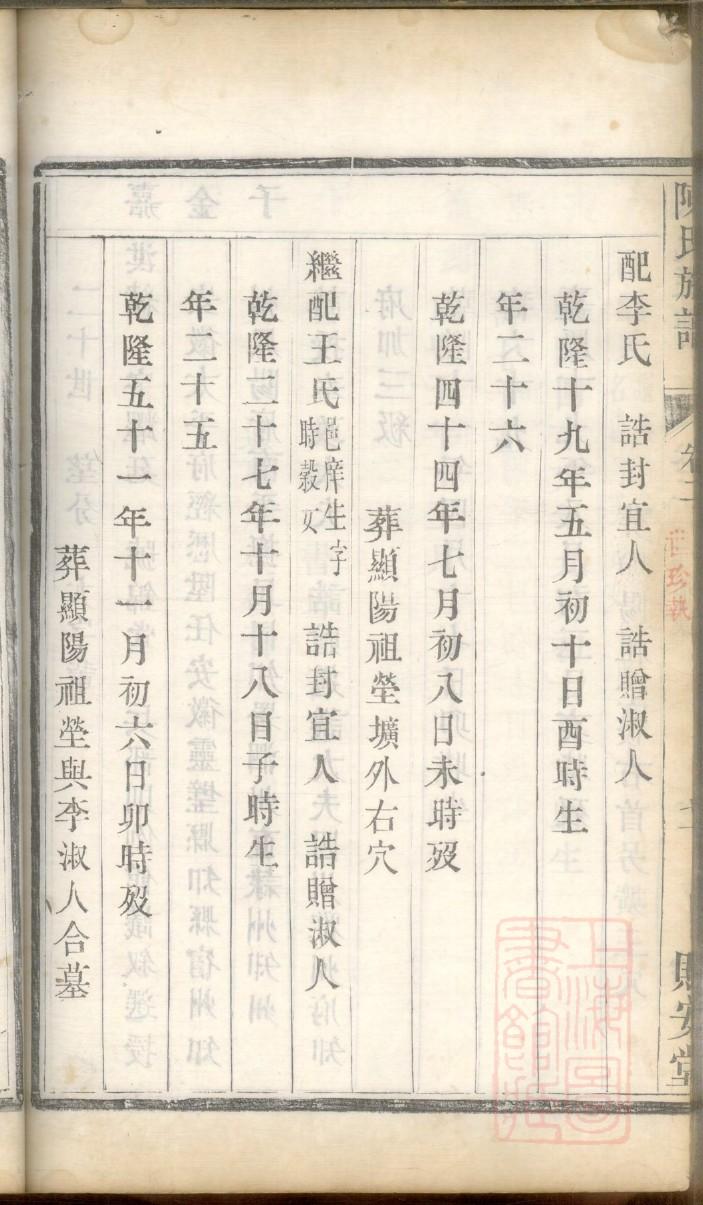 陳氏族譜
卷二
世珍執
貽安堂
配李氏 誥封宜人 誥贈淑人
乾隆十九年五月初十日酉時生
年二十六
乾隆四十四年七月初八日未時歿
葬顯陽祖塋壙外右穴
繼配王氏 邑庠生字
時穀女
誥封宜人 誥贈淑人
乾隆二十七年十月十八日子時生
年二十五
乾隆五十一年十一月初六日卯時歿
葬顯陽祖塋與李淑人合墓
上海圖書館藏